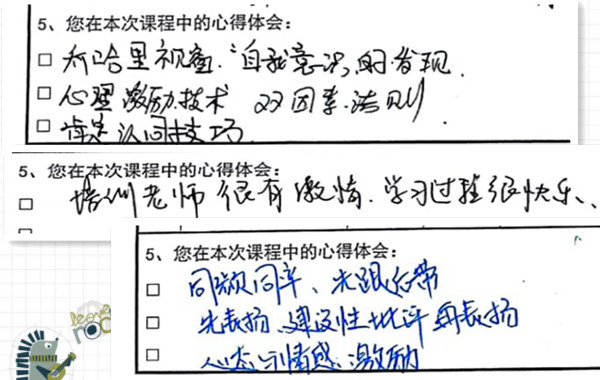 5、您在本次课程中的心得体会:
□ 乔哈里视窗.“自我意识”的发现.
□ 心理激励技术 双因素法则
□ 肯定认同技巧.
5、您在本次课程中的心得体会:
□ 培训老师很有激情.学习过程很快乐、
□
5、您在本次课程中的心得体会:
□ 同频同率、先跟后带
□ 先表扬、建设性批评再表扬
□ 心态、情感、激励